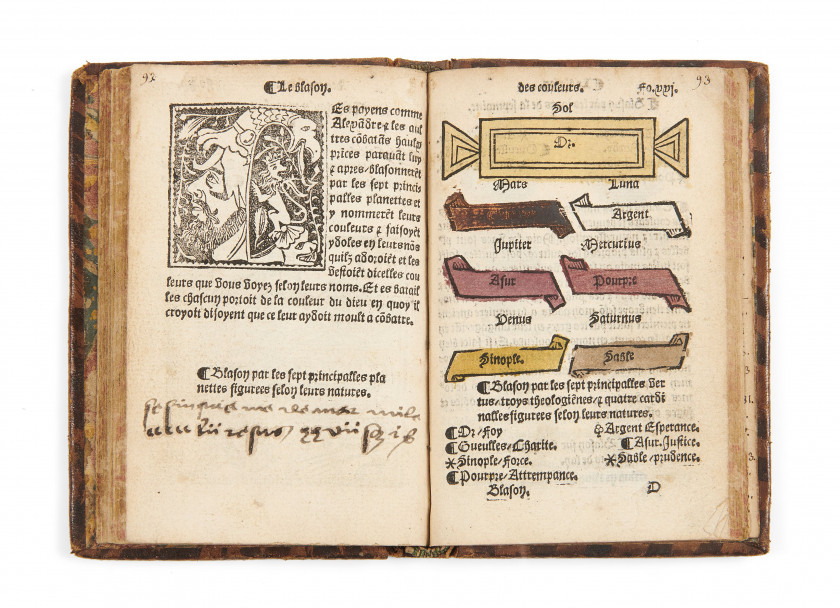 92
¶Le blason.
Es payens comme
Alexãdre ⁊ les aul
tres cõbatãs haulx
prices parauãt luy
⁊ apres/blasonnerẽt
par les sept princi
palles planettes et
y nommerẽt leurs
couleurs ⁊ faisoyẽt
ydoles en leurs nõs
quilz adoroiẽt et les
vestoiẽt dicelles cou
leurs que vous voyez selon leurs noms. Et es batail
les chascun portoit de la couleur du dieu en quoy il
croyoit disoyent que ce leur aydoit moult a cõbatre.
¶Blason par les sept principalles pla
nettes figurees selon leurs natures.
93
des couleurs. Fo.xxj.
Sol
Or.
Mars Luna
Argent
Jupiter Mercurius
Asur Pourpre
Venus Saturnus
Sinople. Sable
¶Blason par les sept principalles ver
tus/troys theologiẽnes/⁊ quatre cardi
nalles figurees selon leurs natures.
¶Or/Foy Argent Esperance.
¶Gueulles/Charite. ¶Asur.Justice.
*Sinople/Force. *Sable/prudence.
¶Pourpre/Attrempance.
Blason. D